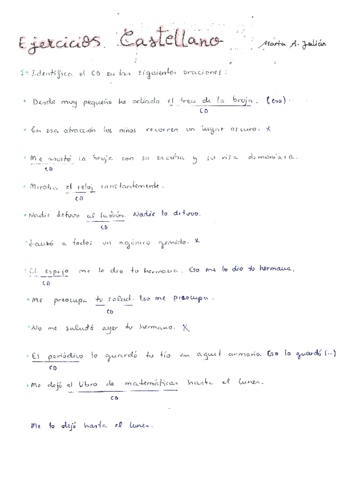 Ejercicios Castellano Marta A. Julián
1- Identifica el CD en las siguientes oraciones:
• Desde muy pequeño he odiado el tren de la bruja. (eso)
CD
• En esa atracción los niños recorren un lugar oscuro. x
• Me asustó la bruja con su escoba y su risa demoníaca.
CD
• Miraba el reloj constantemente.
CD
• Nadie detuvo al ladrón. Nadie lo detuvo.
CD
• Lanzó a todos un agónico gemido. x
• El espejo me lo dio tu hermana. Eso me lo dio tu hermana.
CD
• Me preocupa tu salud. Eso me preocupa.
CD
• No me saludó ayer tu hermano. x
• El periódico lo guardó tu tío en aquel armario Eso lo guardó (...)
CD
• Me dejó el libro de matemáticas hasta el lunes.
CD
Me lo dejó hasta el lunes.